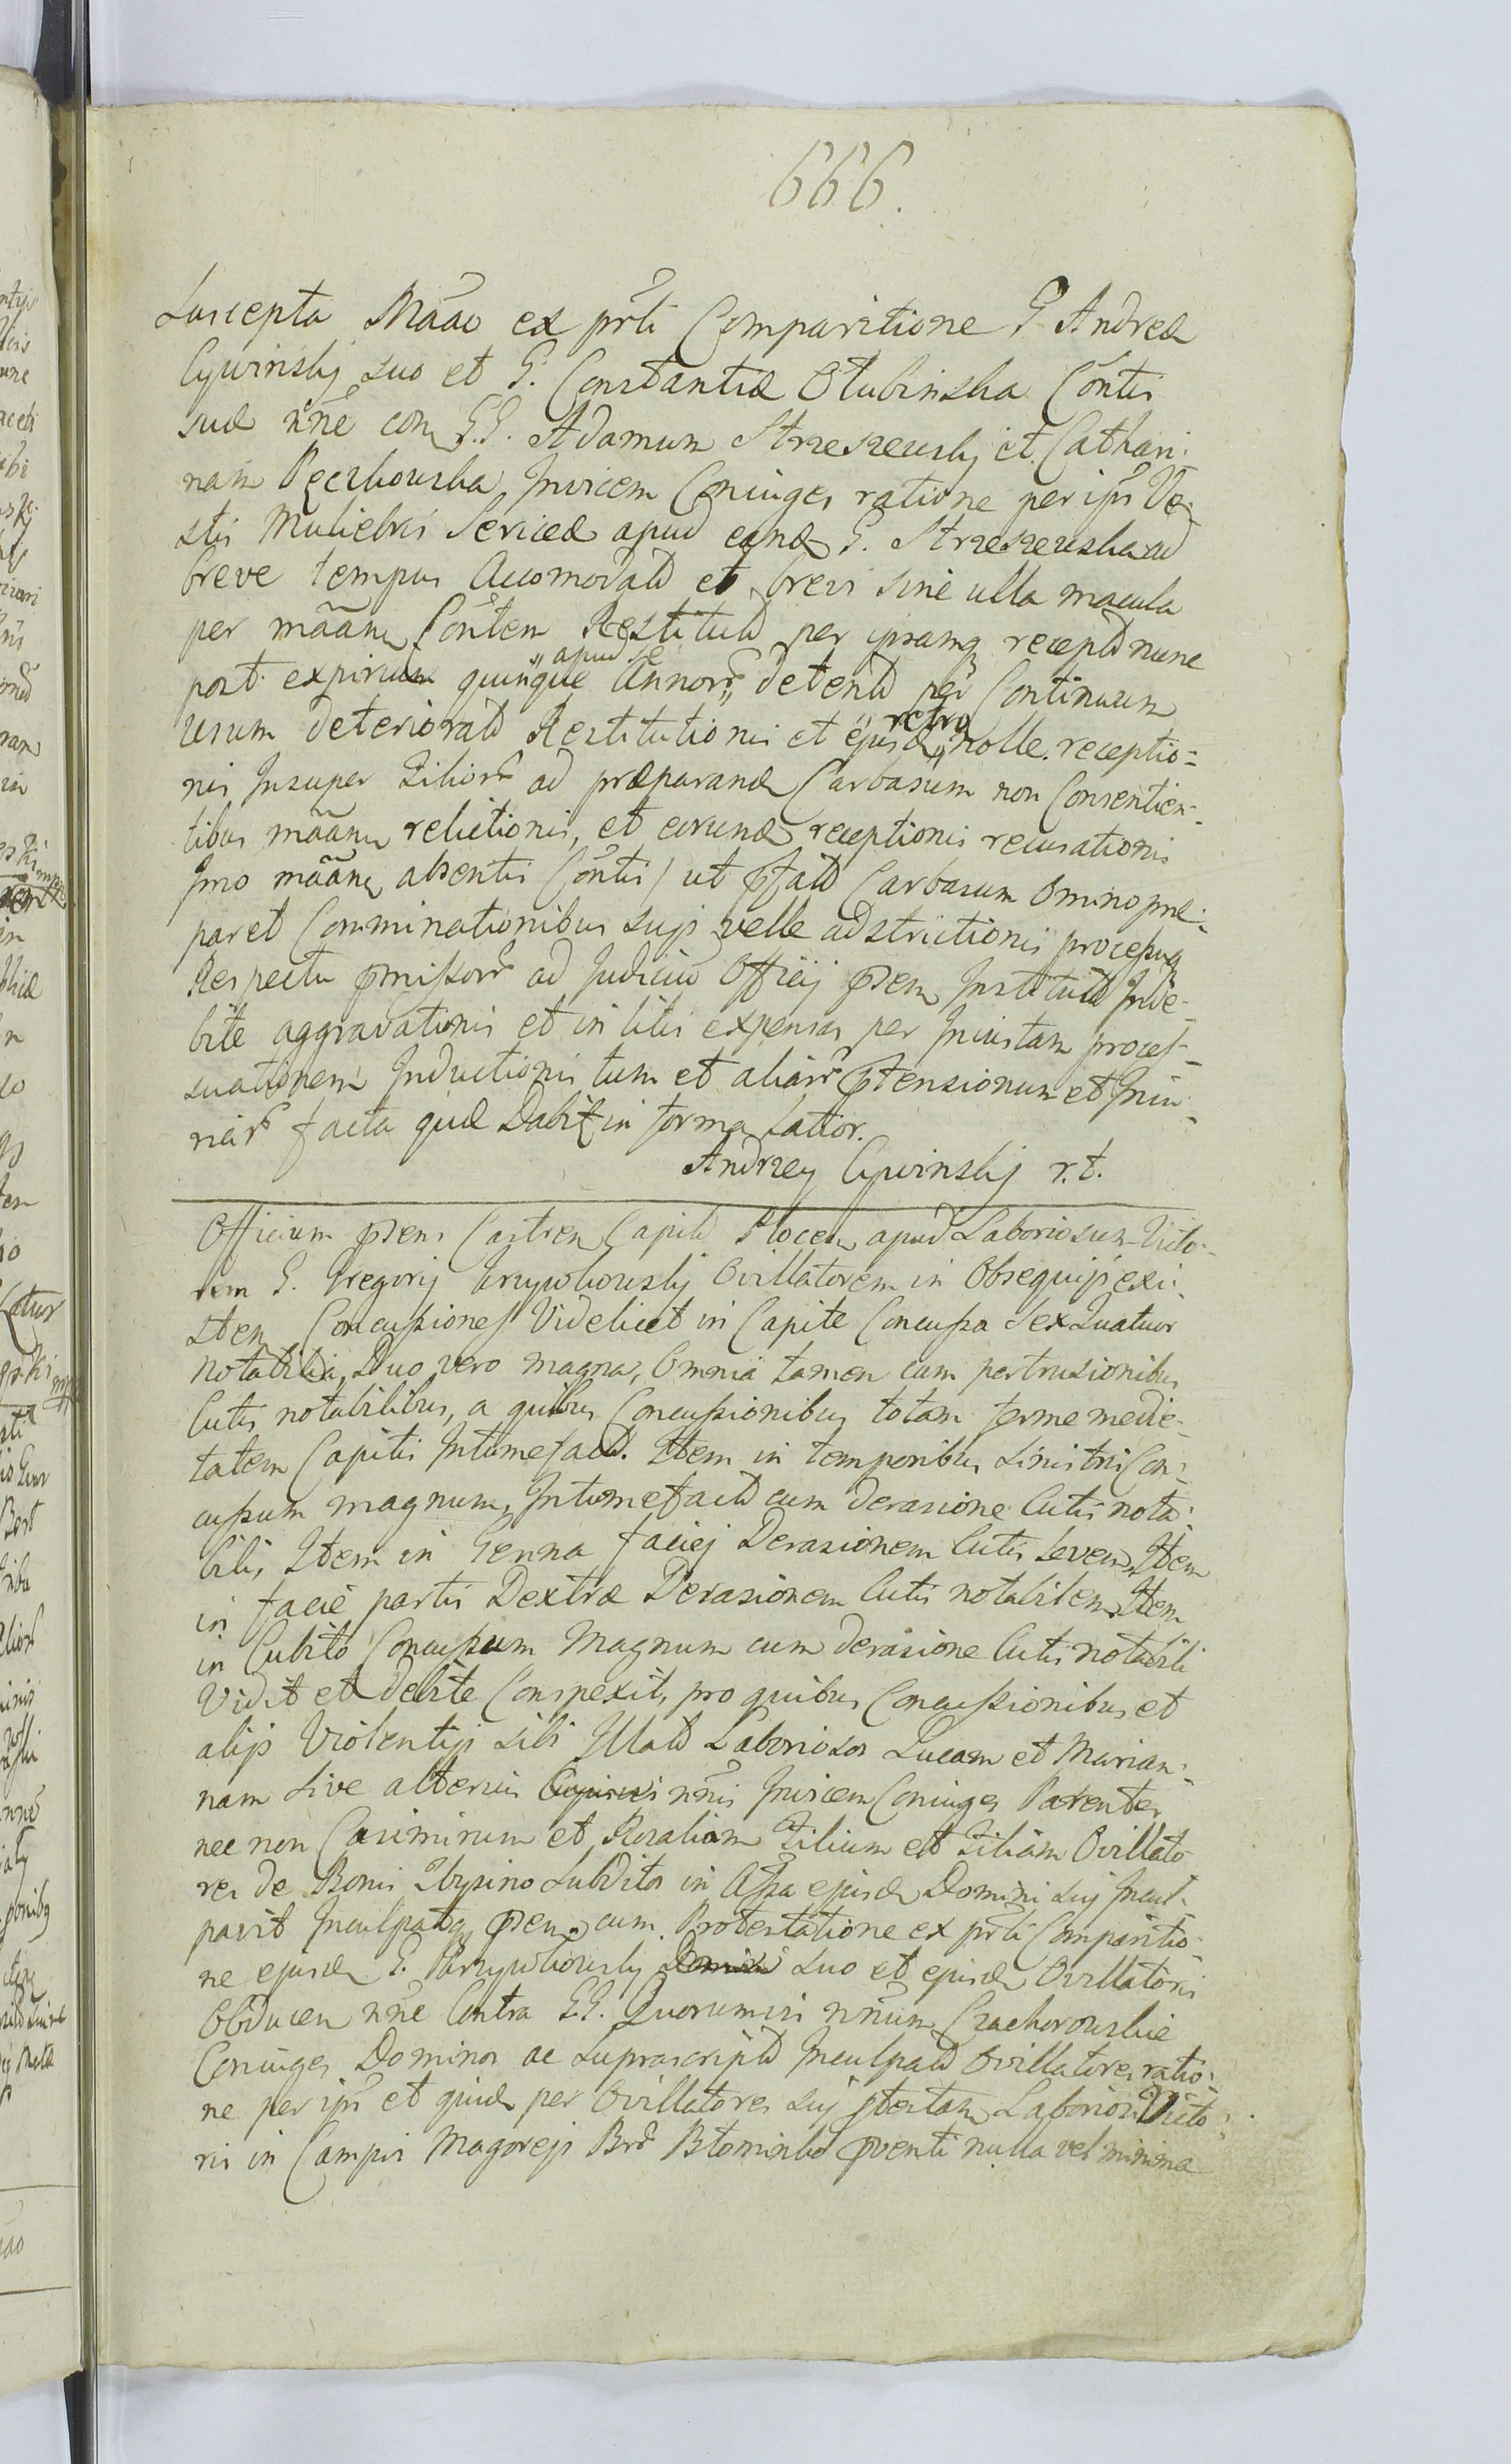 666.
Suscepta Mãão ex prti Comparitione G Andreæ
Cywinskj suo et G. Constantiæ Otubinska Contis
suæ nne con G.G. Adamum Strzeszewskj et Cathari:
nam Pęczkowska Invicem Coniuges ratione per ips Ve:
stis Muliebris Sericeæ apud eand G. Strzeszewska ad
breve tempus Accomodatæ et brevi sine ulla macula
per mããnu Contem Restitutæ per ipsamq receptæ nunc
post expirum quinque „apud se Annor„ detentæ per Continuum
usum deterioratæ Restitutionis et ejusd „retro nolle receptio=
nis Insuper Filior ad præparand Carbasum non Consentien:
tibus mããnu relictionis, et eorund receptionis recusationis
Imo mããnu absentis Contis / ut pfatæ Carbasum Omino præ:
paret Comminationibus sujs velle adstrictionis processuq
Respectu pmissor ad Judiciu Officij psens Institutæ Inde-
bite aggravationis et in litis expensas per Iniustam proces-
suationem Inductionis tum et aliar ptensionum et Iniu-
riar facta quæ Dabit in forma Latior.
Andrzey Cywinskj r.t.
Officium psens Castren Capitæ Plocen apud Laboriosum Victo-
rem G. Gregorij Parzywkowskj Ovillatorem in Obsequijs exi:
sten Concussiones Videlicet in Capite Concussa Sex Quatuor
notabilia, Duo vero magna, Omnia tamen cum pertrusionibus
Cutis notabilibus, a quibus Concussionibus totam ferme medie-
tatem Capitis Intumefact. Item in temporibus Sinistris Con:
cussum magnum, Intumefactæ cum derasione Cutis nota:
bilis, Item in Genna faciej Derasionem Cutis Levem, Item
in facie partis Dextræ Derasionem Cutis notabilem, Item
in Cubito Concussum Magnum cum derasione Cutis notabili
Vidit et debite Conspexit, pro quibus Concussionibus et
alijs Violentijs sibi Illatæ Laboriosos Lucam et Marian:
nam Sive alterius nnis Invicem Coniuges Parentes
nec non Casimirum et Rosaliam Filium et Filiam Ovillato
res de Bonis Zbysino Subditos in Assa ejusd Domini suj Incul:
pavit Inculpatq psen cum Protestatione ex prti Comparitio-
ne ejusd G. Parzywkowskj suo et ejusd Ovillatoris
Obducen nne Contra G.G. Quorumvis nnium Czachorowskie
Coniuges Dominos ac Suprascriptæ Inculpatæ Ovillatores ratio:
ne per ips et quid per Ovillatores suj ptextam Laboriosi Victo:
ris in Campis Magorejs Br Btominko pventi nulla vel minima